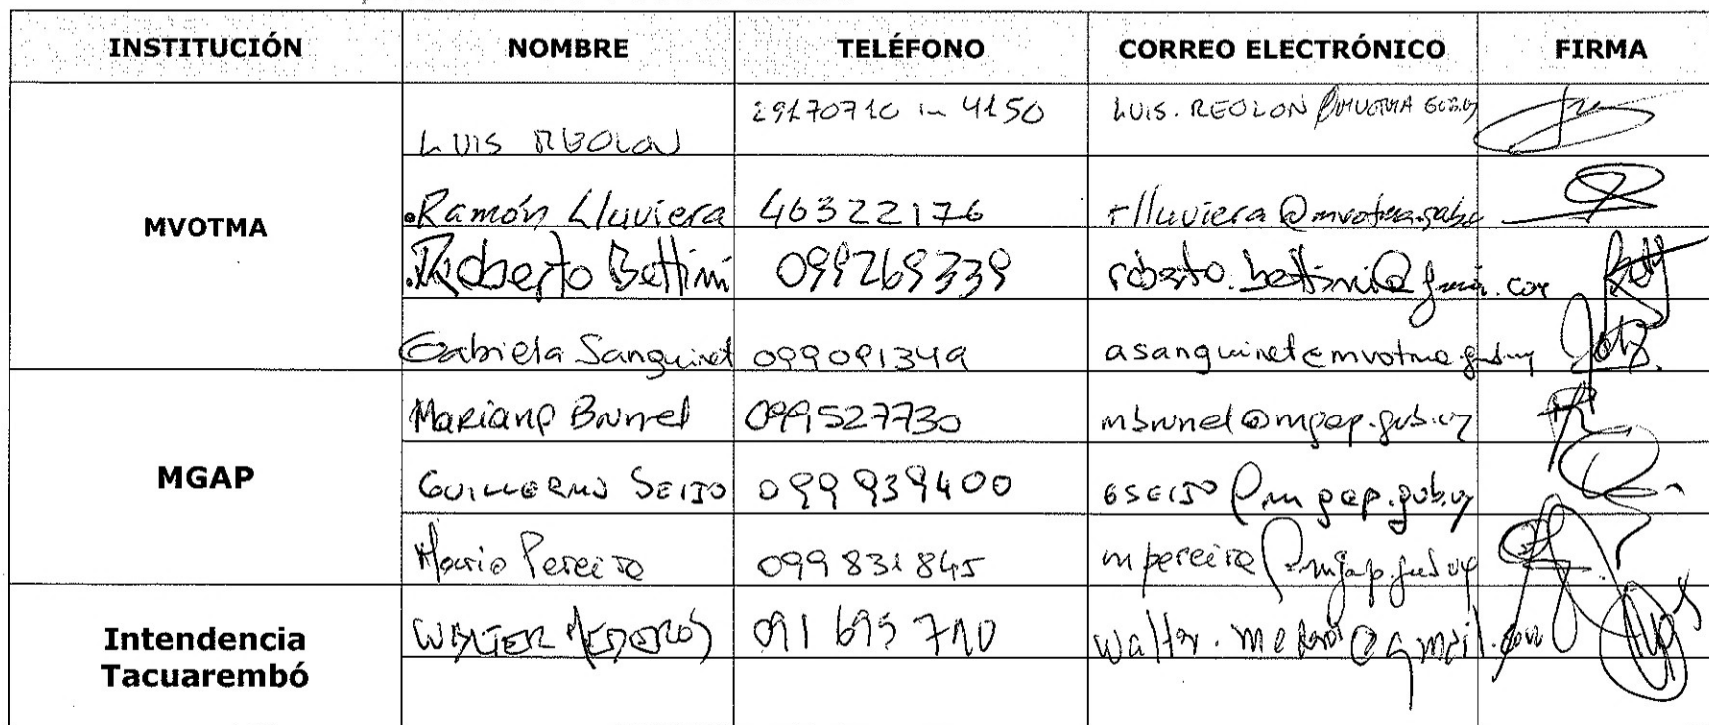 INSTITUCIÓN NOMBRE TELÉFONO CORREO ELECTRÓNICO FIRMA
MVOTMA
LUIS REOLON 29170710 in 4150 LUIS.REOLON@MVOTMA GUB.UY
Ramón Lluviera 46322176 rlluviera@mvotma.gub.
Roberto Bettini 099269339 roberto.bettini@gmail.com
Gabriela Sanguinet 099091349 asanguinet@mvotma.gub.uy
MGAP
Mariana Brunel 099527730 mbrunel@mgap.gub.uy
GUILLERMO SEIJO 099939400 GSEIJO@mgap.gub.uy
Mario Pereira 099831845 mpereira@mgap.gub.uy
Intendencia
Tacuarembó
WALTER MEDEROS 091695710 walter.mederos@gmail.com